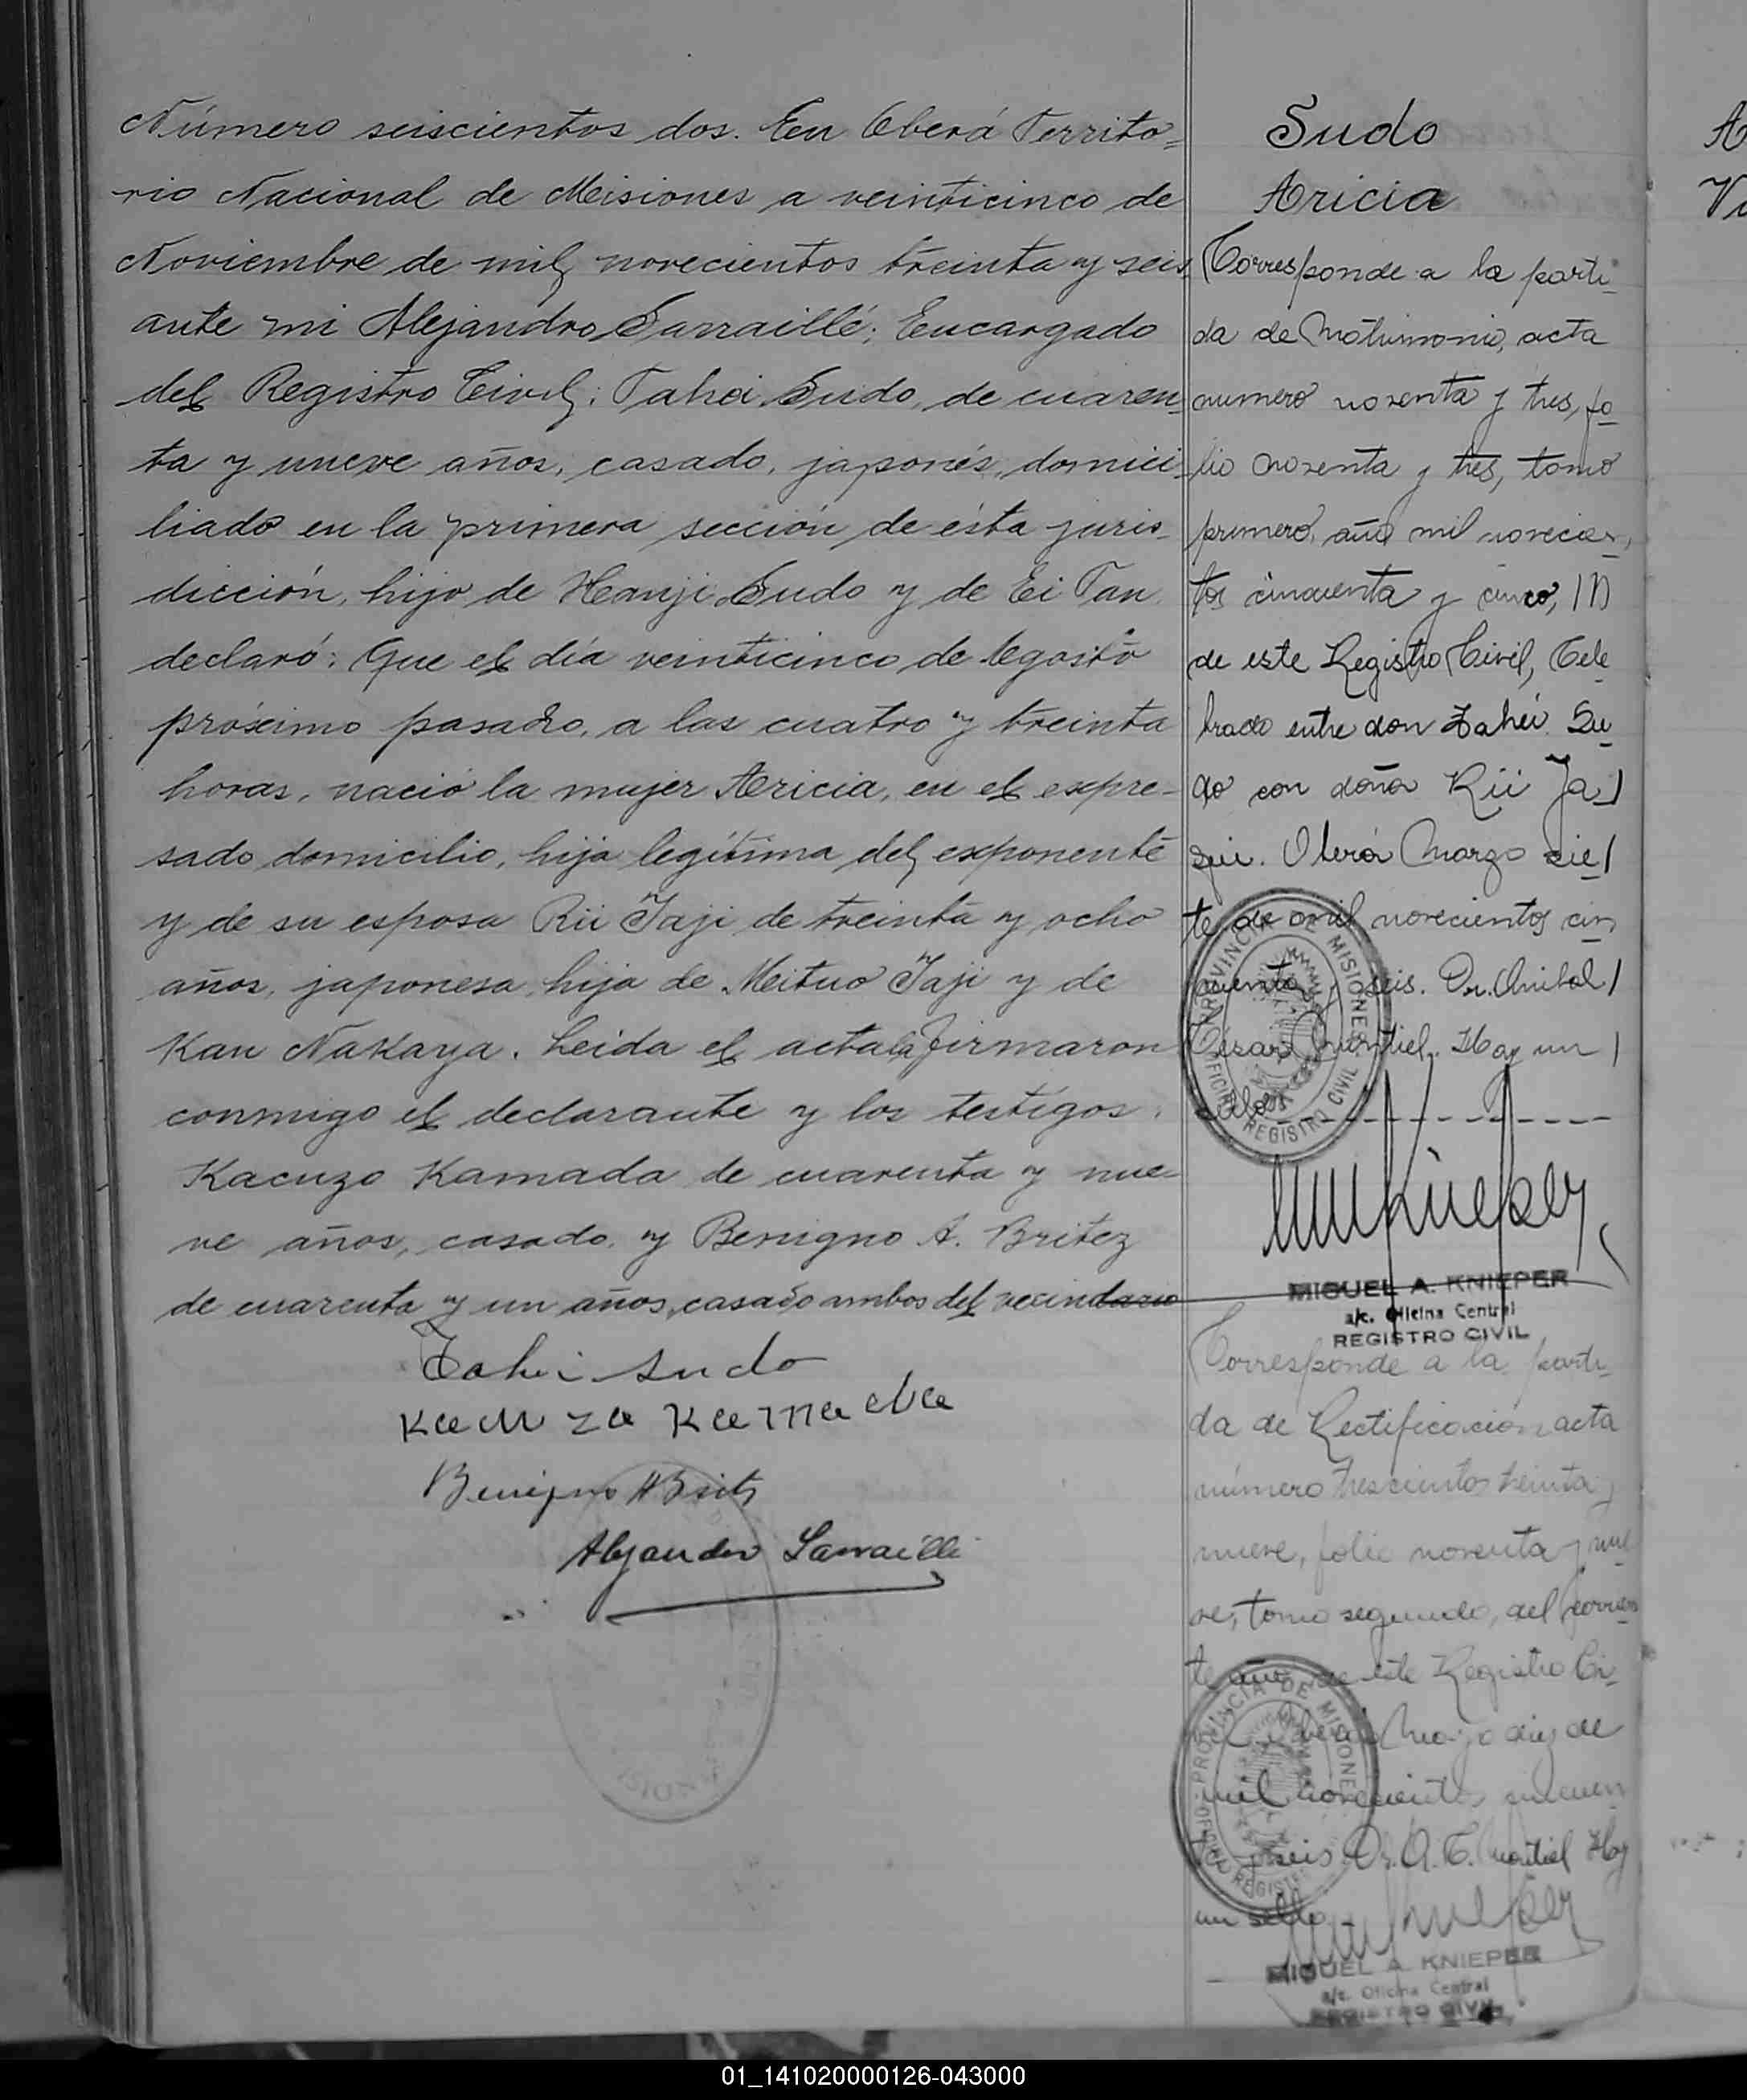 Número seiscientos dos. En Oberá Territo=
rio Nacional de Misiones a veinticinco de
Noviembre de mil novecientos treinta y seis
ante mi Alejandro Sarraillé; Encargado
del Registro Civil; Tahei Sudo, de cuaren-
ta y nueve años, casado, japonés, domici-
liado en la primera sección de ésta juris-
dicción, hijo de Heanji Sudo y de Ei Tan
declaró: Que el día veinticinco de Agosto
próximo pasado, a las cuatro y treinta
horas, nació la mujer Aricia, en el expre-
sado domicilio, hija legítima del exponente
y de su esposa Rii Taji de treinta y ocho
años, japonesa, hija de Meituo Taji y de
Kan Nakaya. Leida el acta la firmaron
conmigo el declarante y los testigos.
Kacuzo Kamada de cuarenta y nue-
ve años, casado, y Benigno A. Britez
de cuarenta y un años, casado ambos del vecindario
Tahei Sudo
Kamada
Benigno A Britz
Alejandro Sarraillé
Sudo
Aricia
Corresponde a la parti-
da de Matrimonio, acta
numero noventa y tres, fo
lio noventa y tres, tomo
primero, año mil novecien-
tos cincuenta y cinco,
de este Registro Civil, Cele
brado entre don Tahei Su
do con doña Rii
Oberá Marzo sie
te de mil novecientos cin
cuenta y seis. Dr. Anibal
Cesar Montiel. Hay un
sello
PROVINCIA DE MISIONES
OFICINA REGISTRO CIVIL
MIGUEL A. KNIEPER
a/c. Oficina Central
REGISTRO CIVIL
Corresponde a la parti-
da de Rectificación acta
número trescientos treinta y
nueve, folio noventa y nue
ve, tomo segundo, del corrien
te año de este Registro Ci-
Oberá Mayo diez de
mil novecientos cincuen
seis Dr. A. C. Montiel Hay
un sello
PROVINCIA DE MISIONES
MIGUEL A. KNIEPER
a/c. Oficina Central
REGISTRO CIVIL
01_141020000126-043000